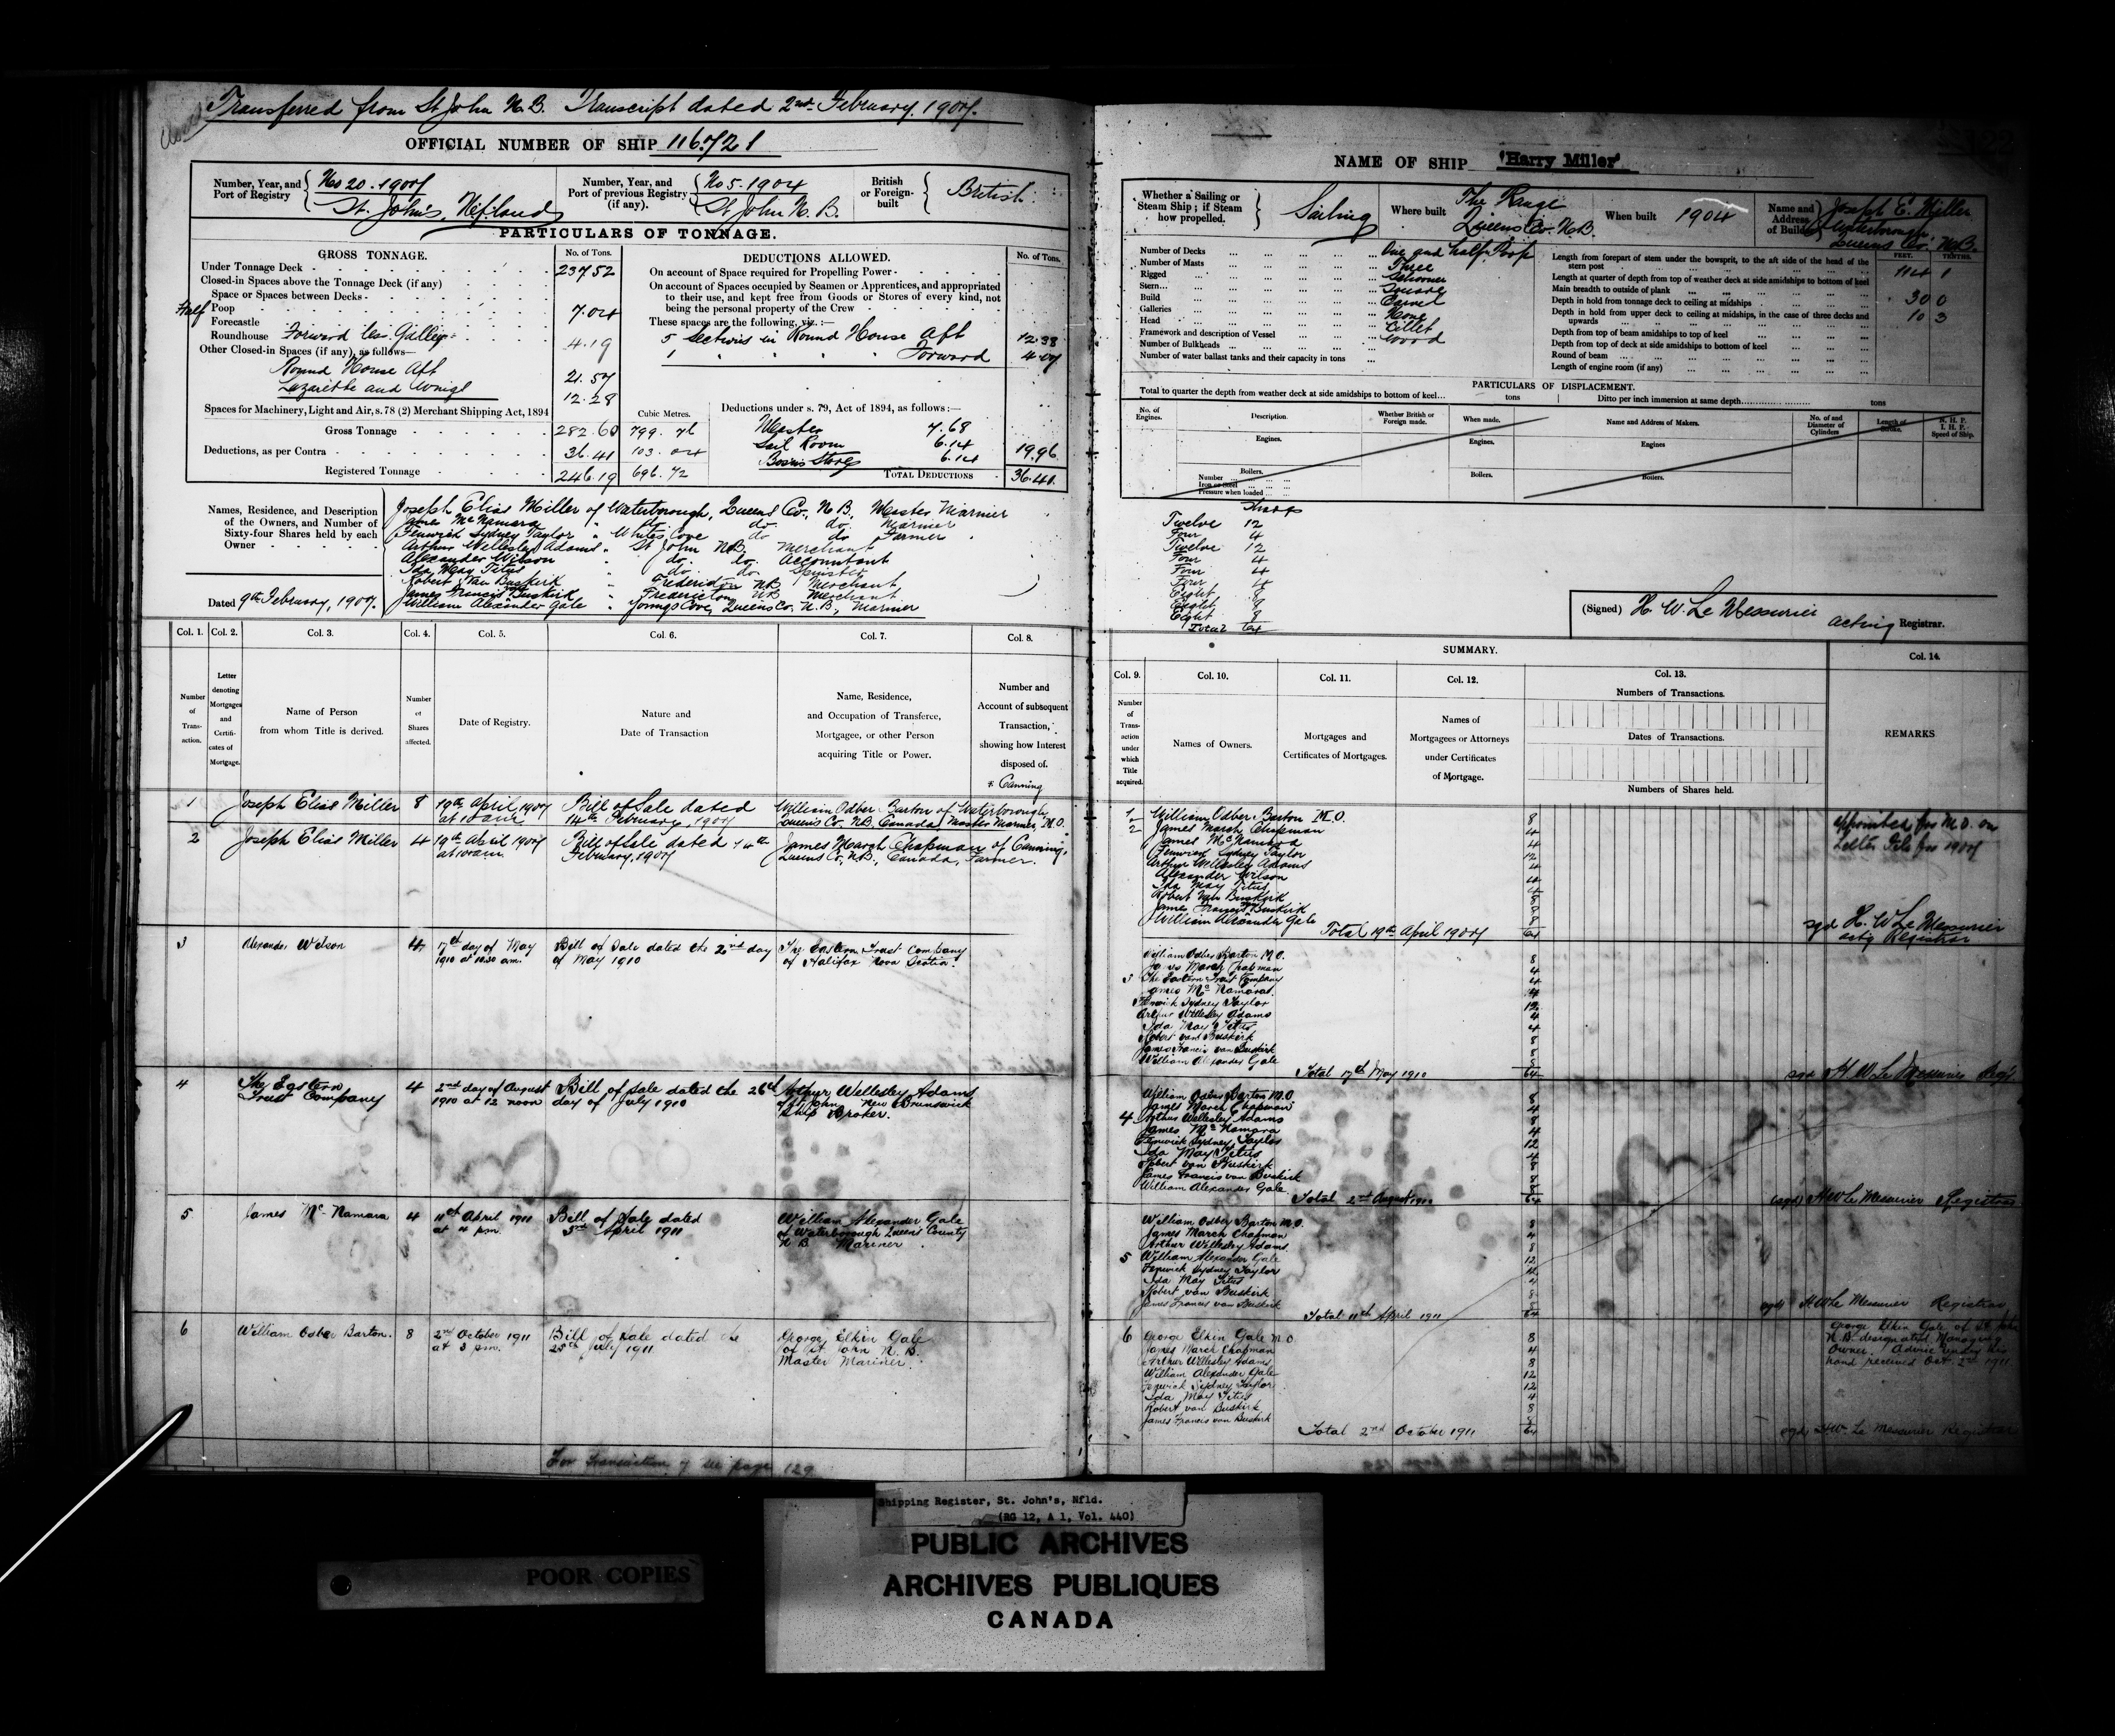 Closed
Transferred from St John N.B. Transcript dated 2nd February, 1907.
OFFICIAL NUMBER OF SHIP 116,721
Number, Year, and Port of Registry
No 20 - 1907
St. John's, Nfland
Number, Year, and Port of previous Registry (if any).
No 5 - 1904
St John N.B.
British or Foreign-built
British
PARTICULARS OF TONNAGE.
GROSS TONNAGE.
No. of Tons.
Under Tonnage Deck 237.52
Closed-in Spaces above the Tonnage Deck (if any)
Space or Spaces between Decks
Half Poop 7.04
Forecastle
Roundhouse Forward les Galley 4.19
Other Closed-in Spaces (if any), as follows—
Round House Aft 21.57
Lazarette and 12.28
Spaces for Machinery, Light and Air, s. 78 (2) Merchant Shipping Act, 1894
Cubic Metres.
Gross Tonnage 282.60 799.76
Deductions, as per Contra 36.41 103.04
Registered Tonnage 246.19 696.72
DEDUCTIONS ALLOWED.
No. of Tons.
On account of Space required for Propelling Power
On account of Spaces occupied by Seamen or Apprentices, and appropriated
to their use, and kept free from Goods or Stores of every kind, not
being the personal property of the Crew
These spaces are the following, viz.:—
5 Sections in Round House Aft 12.38
1 " " " " Forward 4.07
Deductions under s. 79, Act of 1894, as follows:—
Master 7.68
Sail Room 6.14
Bosuns Stores 6.14
19.96
TOTAL DEDUCTIONS 36.41
Names, Residence, and Description of the Owners, and Number of Sixty-four Shares held by each Owner
Joseph Elias Miller of Waterborough, Queens Co., N.B. Master Mariner
James McNamara " do. do do. Mariner
Fenwick Sydney Taylor " Whites Cove do do Farmer
Arthur Wellesley Adams " St John N.B. Merchant
Alexander Wilson " do. do. Accountant
Ida May Titus " do. do Spinster
Robert Van Buskirk " Fredericton N.B Merchant
James Francis Van Buskirk " Fredericton NB Merchant
William Alexander Gale " Youngs Cove, Queens Co. N.B., Mariner
Dated 9th February, 1907.
Col. 1. Col. 2. Col. 3. Col. 4. Col. 5. Col. 6. Col. 7. Col. 8.
Number of Transaction.
Letter denoting Mortgages and Certificates of Mortgage.
Name of Person from whom Title is derived.
Number of Shares affected.
Date of Registry.
Nature and Date of Transaction
Name, Residence, and Occupation of Transferee, Mortgagee, or other Person acquiring Title or Power.
Number and Account of subsequent Transaction, showing how Interest disposed of.
* Canning
1 Joseph Elias Miller 8 19th April 1907 at 10 am Bill of Sale dated 14th February, 1907 William Odber Barton of Waterborough, Queens Co. N.B. Canada, Master Mariner, M.O.
2 Joseph Elias Miller 4 19th April 1907 at 10 am Bill of Sale dated 14th February, 1907 James March Chapman of Canning, Queens Co, N.B., Canada, Farmer.
3 Alexander Wilson 4 17th day of May 1910 at 10.30 am. Bill of Sale dated the 2nd day of May 1910 The Eastern Trust Company of Halifax Nova Scotia.
4 The Eastern Trust Company 4 2nd day of August 1910 at 12 noon Bill of Sale dated the 26th day of July 1910 Arthur Wellesley Adams of St John, New Brunswick Ship Broker.
5 James McNamara 4 11th April 1911 at 4 pm. Bill of Sale dated 3rd April 1911 William Alexander Gale of Waterborough Queens County N B Mariner
6 William Odber Barton. 8 2nd October 1911 at 3 pm. Bill of Sale dated the 25th July 1911 George Elkin Gale of St. John N.B. Master Mariner.
For Transaction 7 see page 129
122
NAME OF SHIP "Harry Miller"
Whether a Sailing or Steam Ship; if Steam how propelled.
Sailing
Where built
The Range
Queens Co. N.B.
When built 1904
Name and Address of Builders
Joseph E. Miller
Waterborough
Queens Co. N.B.
Number of Decks One and half Poop
Number of Masts Three
Rigged Schooner
Stern Square
Build Carvel
Galleries None
Head Billet
Framework and description of Vessel Wood
Number of Bulkheads
Number of water ballast tanks and their capacity in tons
FEET. TENTHS.
Length from forepart of stem under the bowsprit, to the aft side of the head of the stern post 114 1
Length at quarter of depth from top of weather deck at side amidships to bottom of keel
Main breadth to outside of plank 30 0
Depth in hold from tonnage deck to ceiling at midships 10 3
Depth in hold from upper deck to ceiling at midships, in the case of three decks and upwards
Depth from top of beam amidships to top of keel
Depth from top of deck at side amidships to bottom of keel
Round of beam
Length of engine room (if any)
PARTICULARS OF DISPLACEMENT.
Total to quarter the depth from weather deck at side amidships to bottom of keel... tons Ditto per inch immersion at same depth tons
No. of Engines.
Description.
Whether British or Foreign made.
When made.
Name and Address of Makers.
No. of and Diameter of Cylinders
Length of Stroke.
N. H. P. I. H. P. Speed of Ship.
Engines. Engines. Engines
Boilers. Boilers. Boilers.
Number
Iron or Steel
Pressure when loaded
Shares
Twelve 12
Four 4
Twelve 12
Four 4
Four 4
Four 4
Eight 8
Eight 8
Eight 8
Total 64
(Signed) H. W. Le Messurier acting Registrar.
SUMMARY.
Col. 9. Col. 10. Col. 11. Col. 12. Col. 13. Col. 14.
Number of Transaction under which Title acquired.
Names of Owners.
Mortgages and Certificates of Mortgages.
Names of Mortgagees or Attorneys under Certificates of Mortgage.
Numbers of Transactions.
Dates of Transactions.
Numbers of Shares held.
REMARKS
1 William Odber Barton M.O. 8
2 James March Chapman 4
James McNamara 4
Fenwick Sydney Taylor 12
Arthur Wellesley Adams 4
Alexander Wilson 4
Ida May Titus 4
Robert Van Buskirk 8
James Francis Van Buskirk 8
William Alexander Gale 8
Total 19th April 1907 64
Appointed for M.O. on
Letter File for 1907
sgd H. W. Le Messurier
actg Registrar
William Odber Barton M.O. 8
James March Chapman 4
3 The Eastern Trust Company 4
James McNamara 4
Fenwick Sydney Taylor 12
Arthur Wellesley Adams 4
Ida May Titus 4
Robert van Buskirk 8
James Francis van Buskirk 8
William Alexander Gale 8
Total 17th May 1910 64
sgd H. W. Le Messurier Regr.
William Odber Barton M.O 8
James March Chapman 4
4 Arthur Wellesley Adams 8
James McNamara 4
Fenwick Sydney Taylor 12
Ida May Titus 4
Robert van Buskirk 8
James Francis van Buskirk 8
William Alexander Gale 8
Total 2nd August 1910 64
(sgd) H W Le Messurier Registrar
William Odber Barton M.O. 8
James March Chapman 4
Arthur Wellesley Adams. 8
5 William Alexander Gale 12
Fenwick Sydney Taylor 12
Ida May Titus 4
Robert van Buskirk 8
James Francis van Buskirk 8
Total 11th April 1911 64
sgd H W Le Messurier Registrar
6 George Elkin Gale M.O 8
James March Chapman 4
Arthur Wellesley Adams 8
William Alexander Gale 12
Fenwick Sydney Taylor 12
Ida May Titus 4
Robert van Buskirk 8
James Francis van Buskirk 8
Total 2nd October 1911 64
George Elkin Gale of St John
N.B. designated Managing
Owner. Advice under his
hand received Oct. 2nd 1911
sgd H W Le Messurier Registrar
Shipping Register, St. John's, Nfld.
(RG 12, A 1, Vol. 440)
POOR COPIES
PUBLIC ARCHIVES
ARCHIVES PUBLIQUES
CANADA